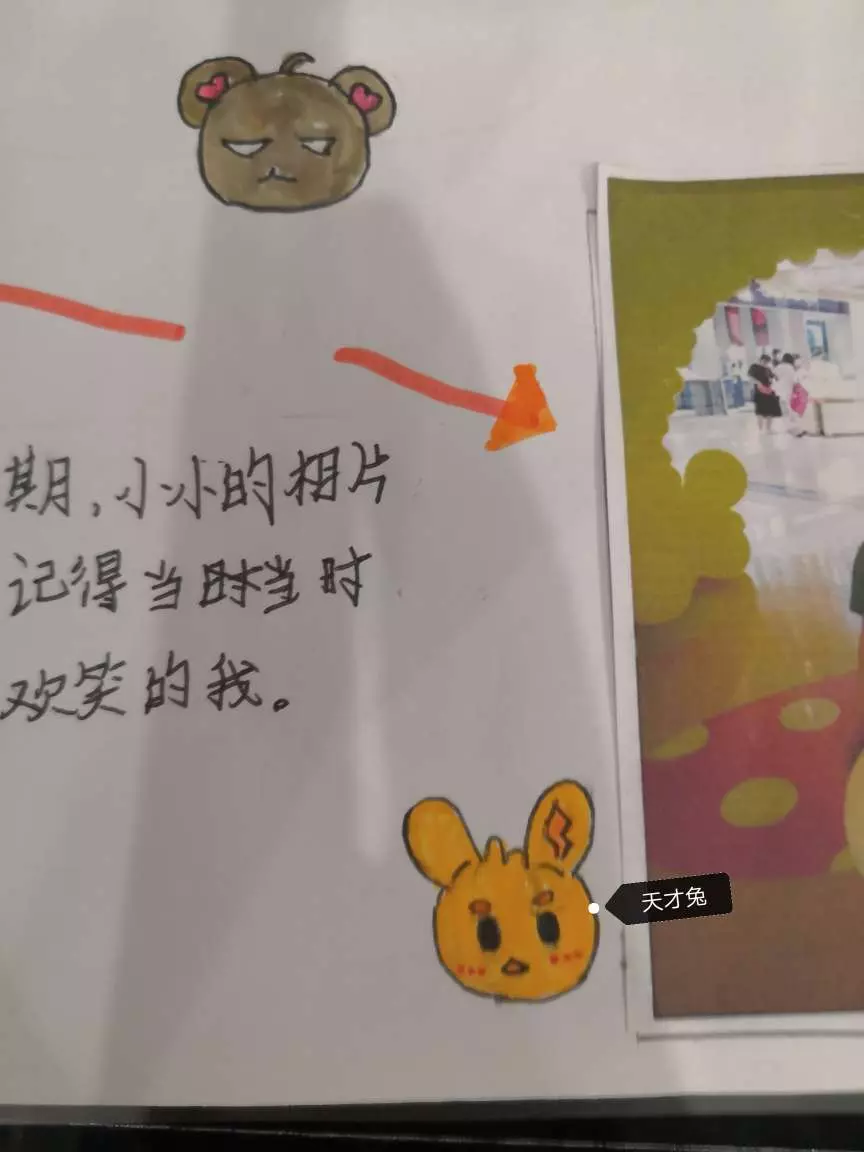 期，小小的相片
记得当时当时
欢笑的我。
天才兔